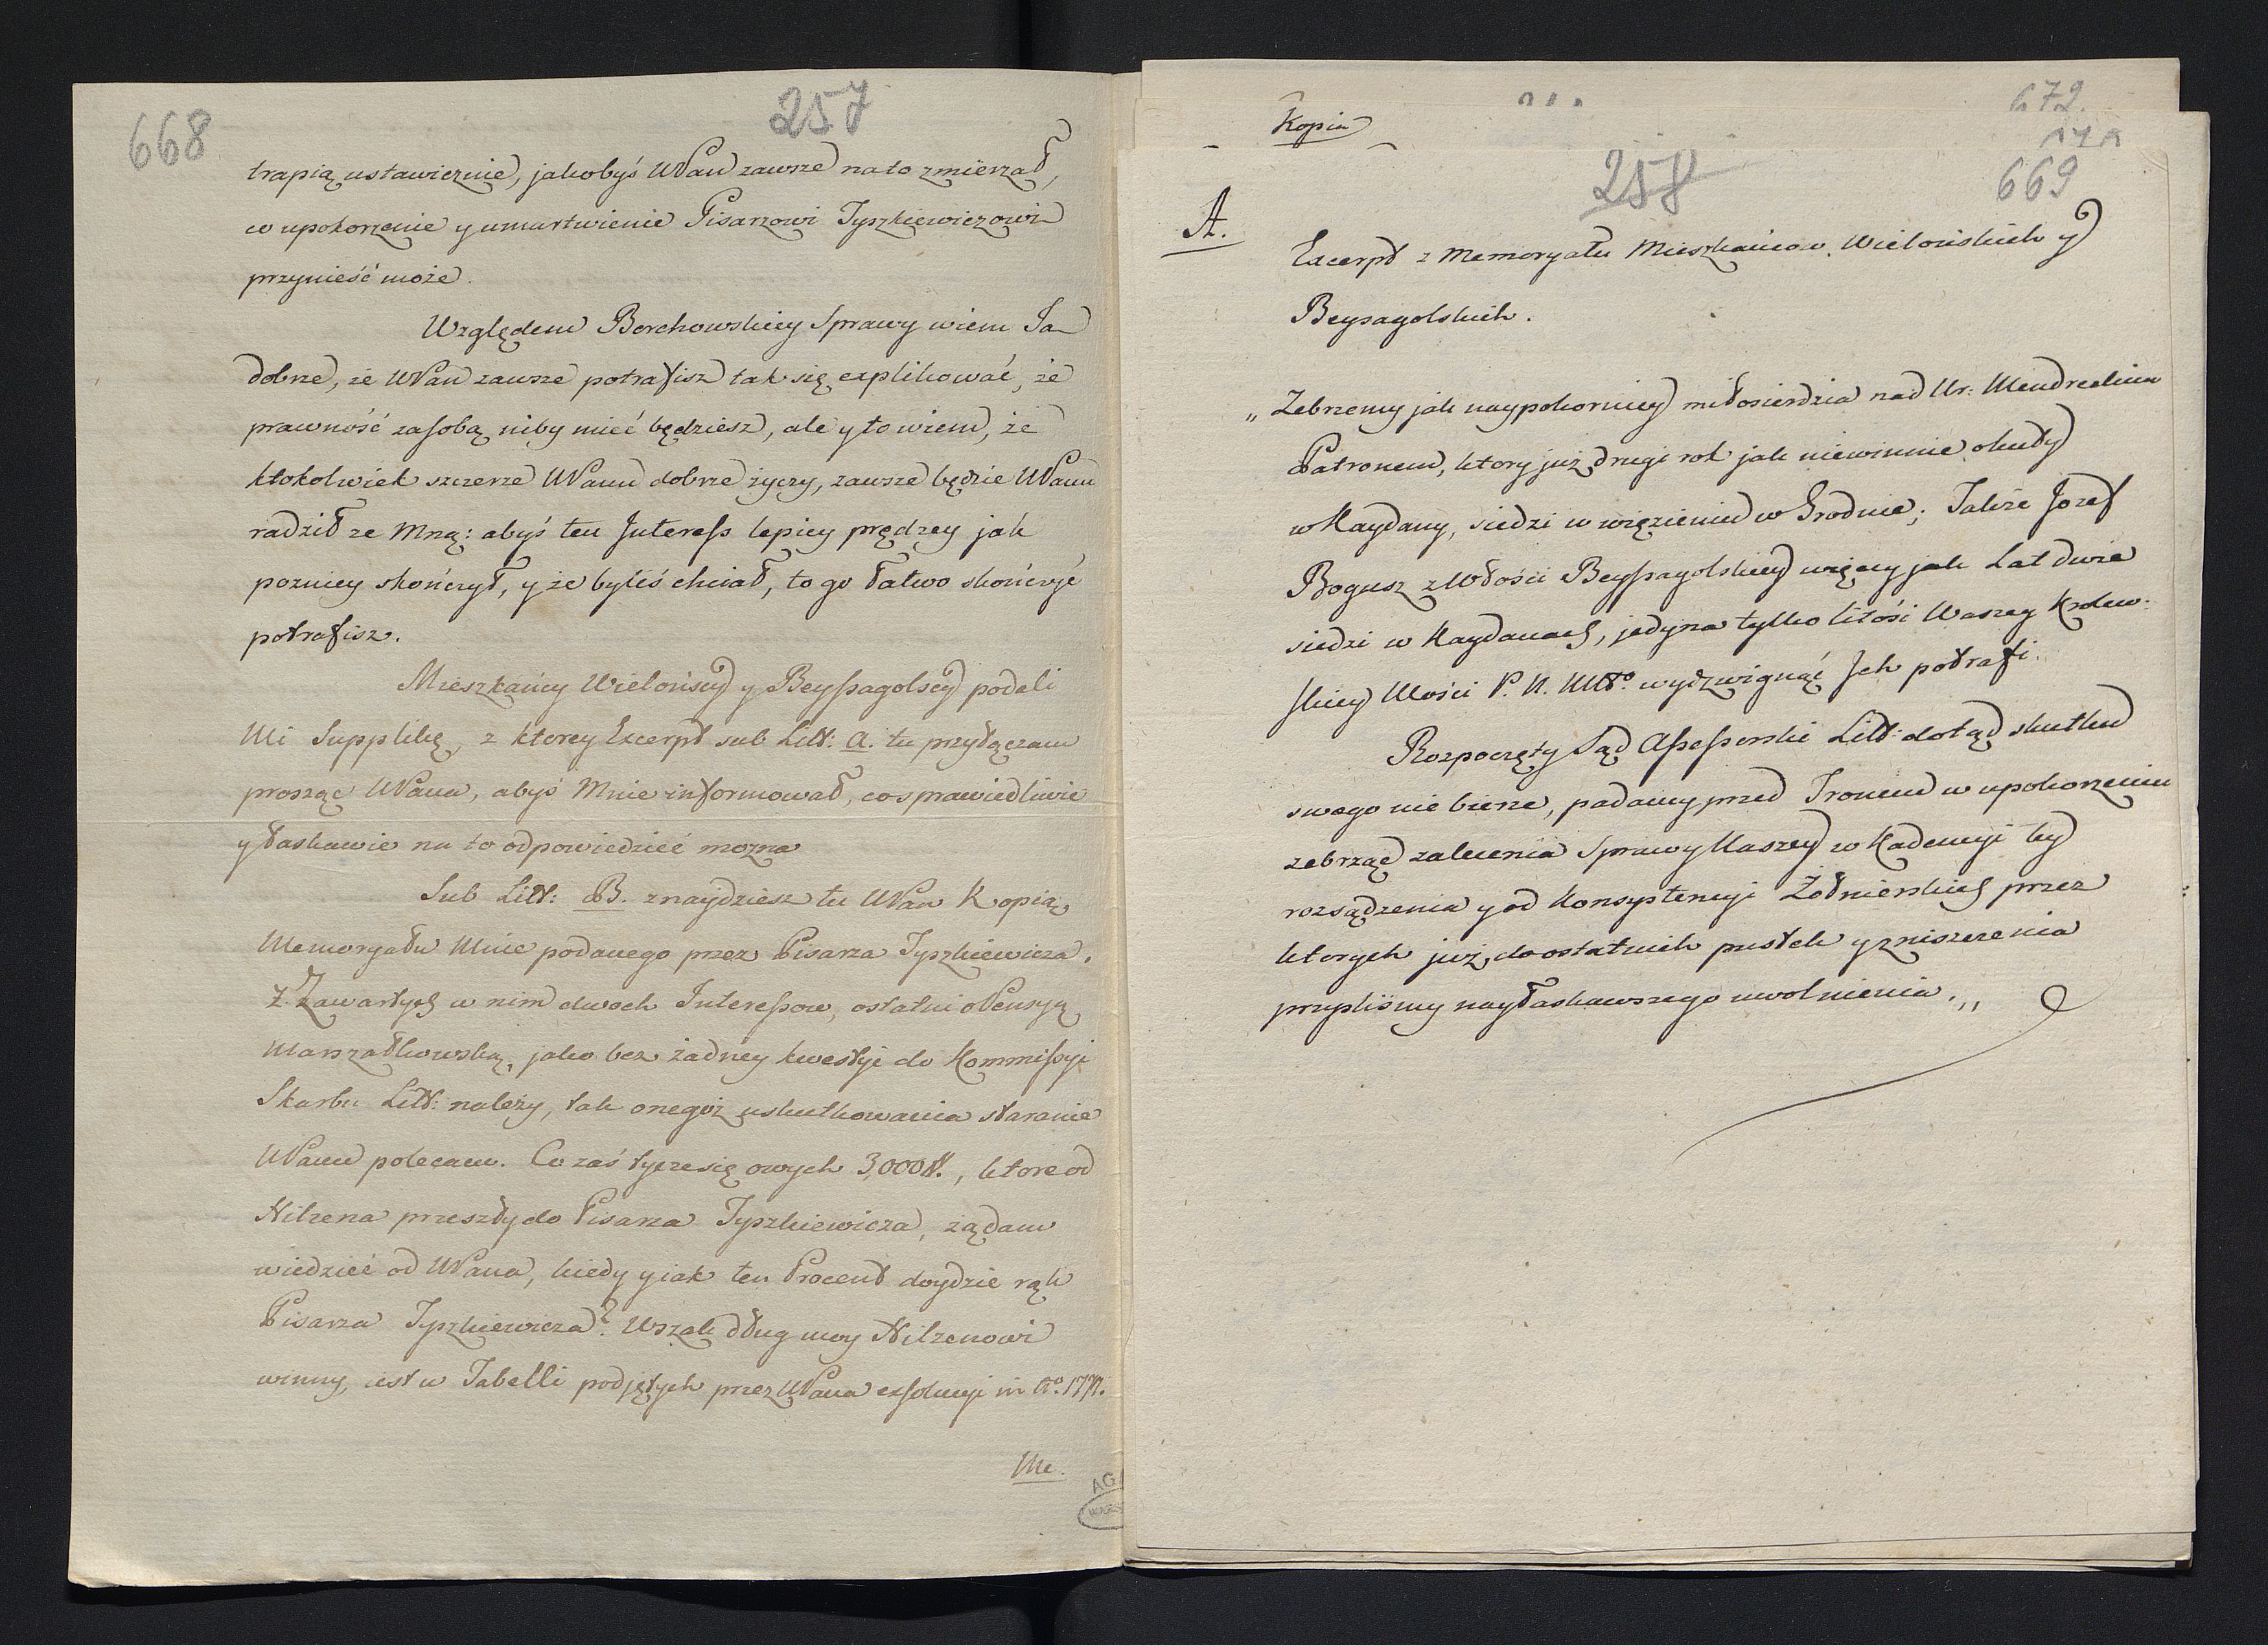 668
257
trapią ustawicznie, jakobyś WPan zawsze na to zmierzał,
co upokorzenie y umartwienie Pisarzowi Tyszkiewiczowi
przynieść może.
Względem Borchowskiey Sprawy wiem Ja
dobrze, że WPan zawsze potrafisz tak się explikować, że
prawność za sobą niby mieć będziesz, ale y to wiem, że
ktokolwiek szczerze WPanu dobrze życzy, zawsze będzie WPanu
radził ze Mną: abyś ten Interess lepiey prędzey jak
pozniey skończył, y że byleś chciał, to go łatwo skończyć
potrafisz.
Mieszkańcy Wielońscy y Beyssagolscy podali
Mi Supplikę, z ktorey Excerpt sub Litt: A. tu przyłączam
prosząc WPana, abyś Mnie informował, co sprawiedliwie
y łaskawie na to odpowiedzieć mozna
Sub Litt: B. znaydziesz tu WPan Kopią
Memoryału Mnie podanego przez Pisarza Tyszkiewicza.
Z Zawartych w nim dwoch Interessow, ostatni o Pensyą
Marszałkowską, jako bez żadney kwestyi do Kommissyi
Skarbu Litt: należy, tak onegoż uskutkowania staranie
WPanu polecam. Co zaś tycze się owych 3,000 #., ktore od
Hilzena przeszły do Pisarza Tyszkiewicza, żądam
wiedzieć od WPana, kiedy y iak ten Procent doydzie rąk
Pisarza Tyszkiewicza? Wszak dług moy Hilzenowi
winny, iest w Tabelli podjętych przez WPana exsolucyi in Ao.
Me.
672
Kopia
258
669
A.
Excerpt z Memoryału Mieszkańcow Wielońskich y
Beysagolskich.
„ Zebrzemy jak naypokorniey miłosierdzia nad Ur:
Patronem, ktory już drugi rok jak niewinnie okuty
w Kaydany, siedzi w więzieniu w Grodnie; Także Jozef
Bogusz z Włości Beyssagolskiey więcey jak Lat dwie
siedzi w Kaydanach, jedyna tylko litość Waszey Krolew:
skiey Mości P. N. Młgo. wydzwignąć Ich potrafi.
Rozpoczęty Sąd Assessorski Litt: dotąd skutku
swego nie bierze, padamy przed Tronem w upokorzeniu
zebrząc zalecenia Sprawy Naszey w Kadencyi tey
rozsądzenia y od Konsystencyi Żołnierskich przez
ktorych już do ostatnich pustek y zniszczenia
przyszliśmy nayłaskawszego uwolnienia. „